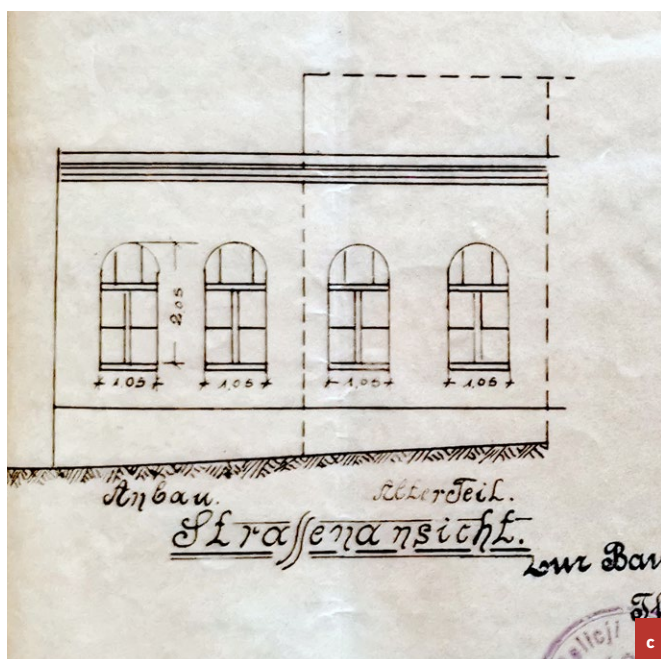 2,05
1,05 1,05 1,05 1,05
Anbau. Alter Teil.
Straſſenansicht.
zur Bau
c